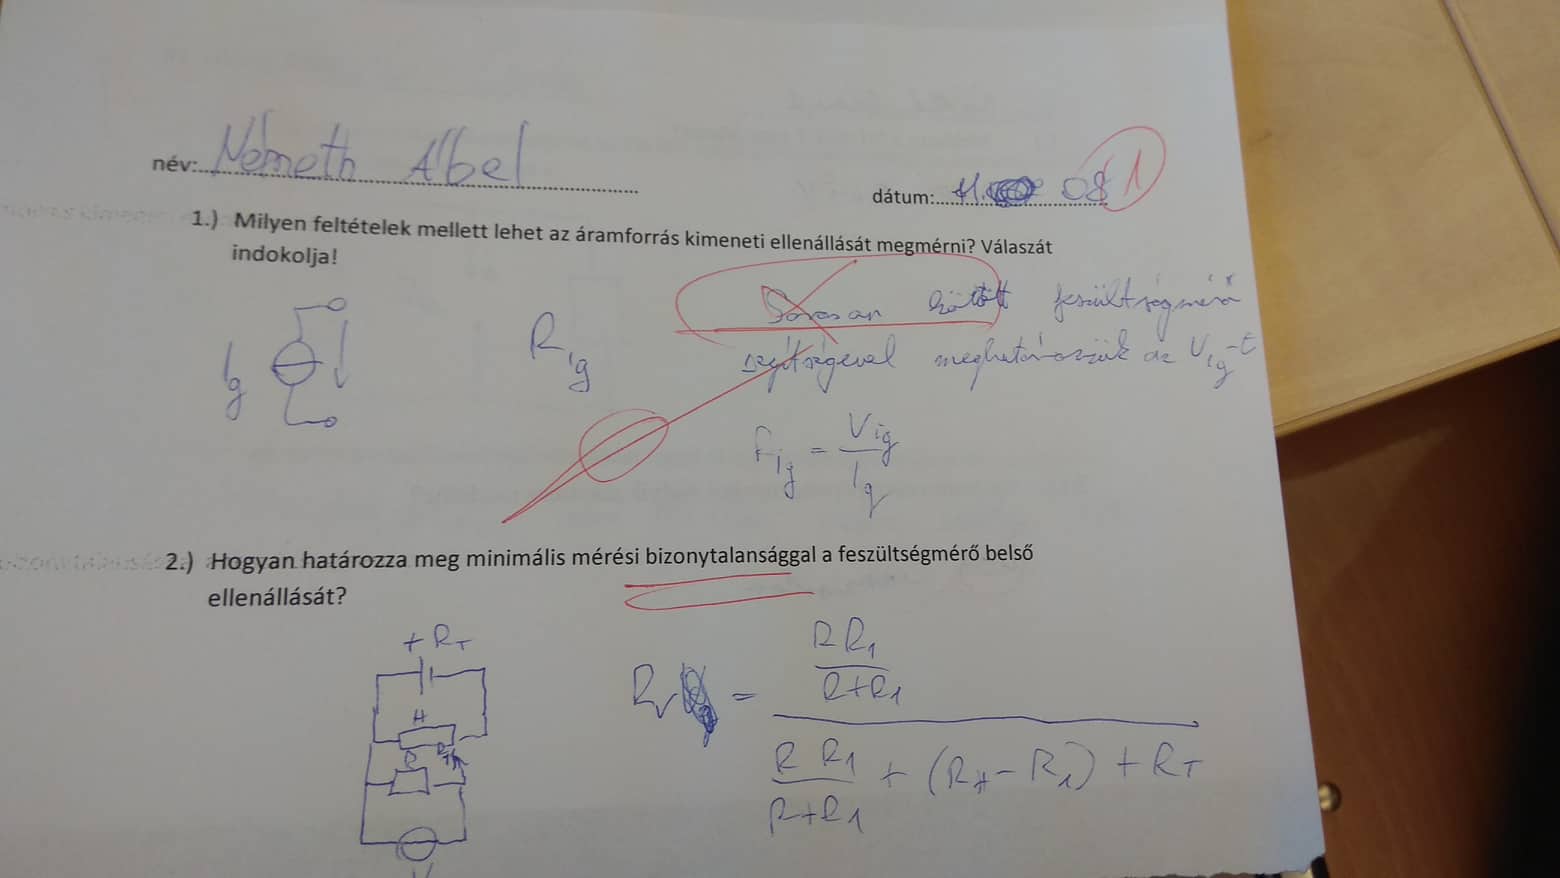 név: Németh Ábel
dátum: 11. 08 1
1.) Milyen feltételek mellett lehet az áramforrás kimeneti ellenállását megmérni? Válaszát
indokolja!
Sorosan kötött feszültségmérő
segítségével meghatározzuk az V_ig-t
I_g
R_ig
R_ig = V_ig / I_g
2.) Hogyan határozza meg minimális mérési bizonytalansággal a feszültségmérő belső
ellenállását?
+ R_T
H
R
V
R_V = (R R_1 / (R+R_1)) / (R R_1 / (R+R_1) + (R_H - R_1) + R_T)